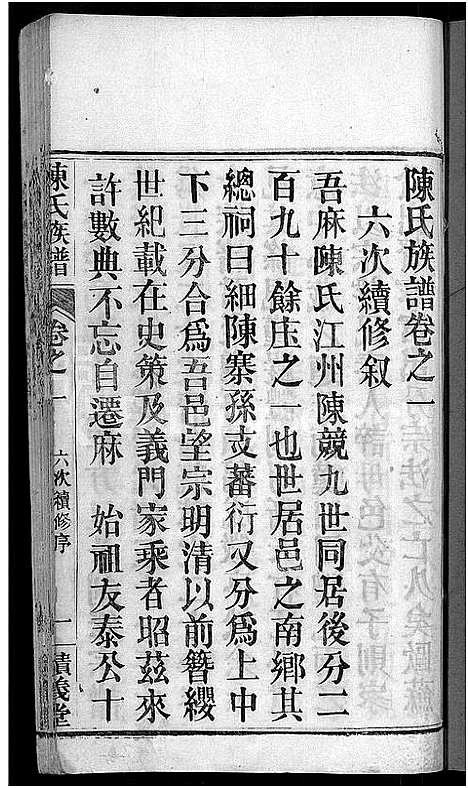 陳氏族譜卷之一
六次續修叙
吾麻陳氏江州陳競九世同居後分二
百九十餘庒之一也世居邑之南鄉其
總祠曰細陳寨孫支蕃衍又分爲上中
下三分合爲吾邑望宗明清以前簪纓
世紀載在史策及義門家乘者昭茲來
許數典不忘自遷麻 始祖友泰公十
陳氏族譜 卷之一 六次續修序 一 義堂